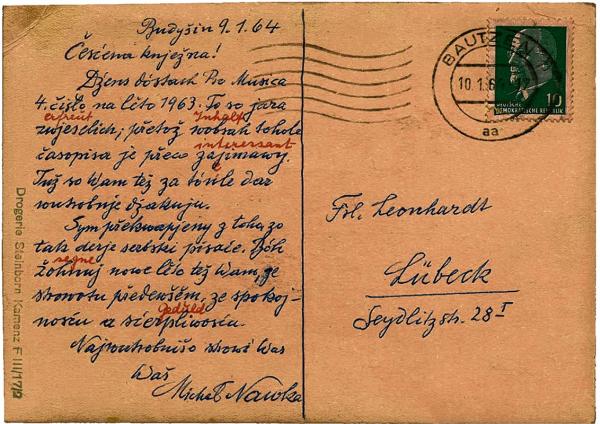 Budyšin 9.1.64
Česćena knježna!
Dźens dóstach Pro Musica
4. čisło na lěto 1963. To so jara
erfreut Inhalt
zwjeselich; přetož wobsah tohole
interessant
časopisa je přeco zajimawy.
Tuž so Wam tež za tónle dar
wutrobnje dźakuju.
Sym překwapjeny z toho, zo
tak derje serbski pisaće. Bóh
segne
žohnuj nowe lěto tež Wam, ze
strowotu předewšěm, ze spokoj-
Geduld
nosću a sćerpliwosću.
Najwutrobnišo strowi Was
Waš
Michał Nawka
Drogerie Steinborn Kamenz F III/17/2
BAUTZEN
10.1.6
aa
10
DEUTSCHE
DEMOKRATISCHE REPUBLIK
Frl. Leonhardt
Lübeck
Seydlitzstr. 28 I